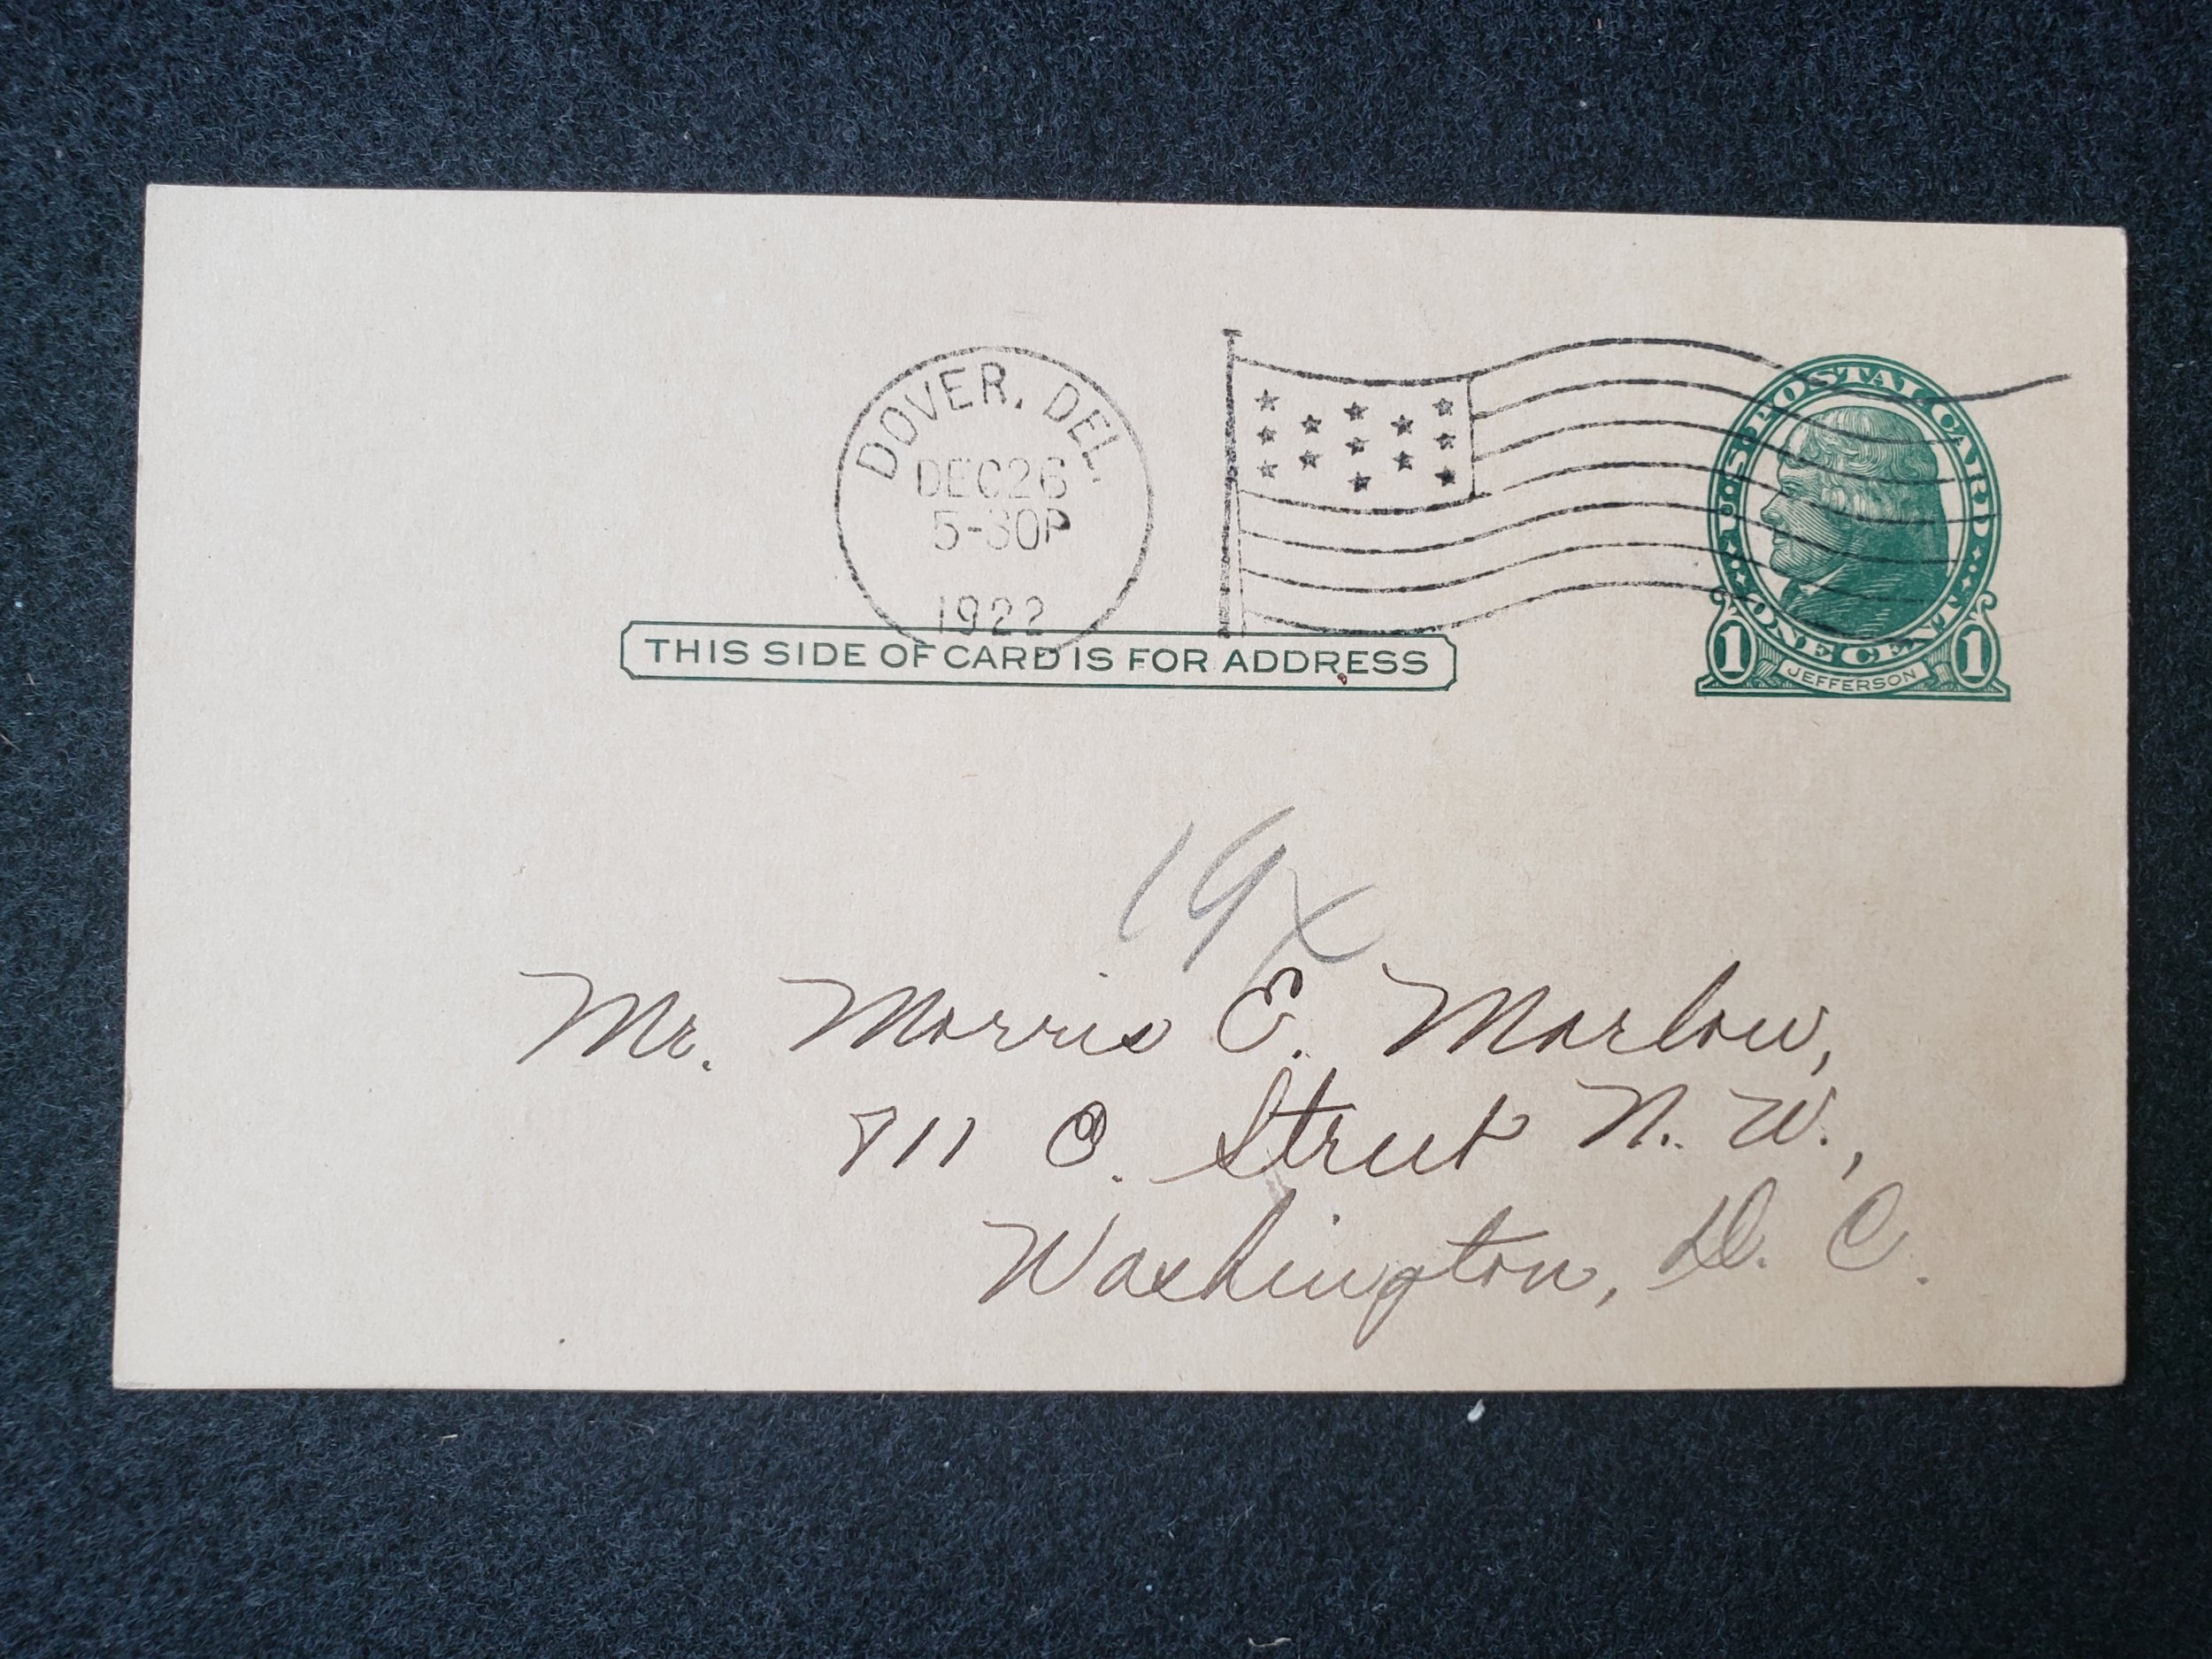 DOVER, DEL.
DEC 26
5-30P
1922
U·S·POSTAL CARD
ONE CENT
1 JEFFERSON 1
THIS SIDE OF CARD IS FOR ADDRESS
19x
Mr. Morris E. Marlow,
811 C. Street N. W.,
Washington, D. C.